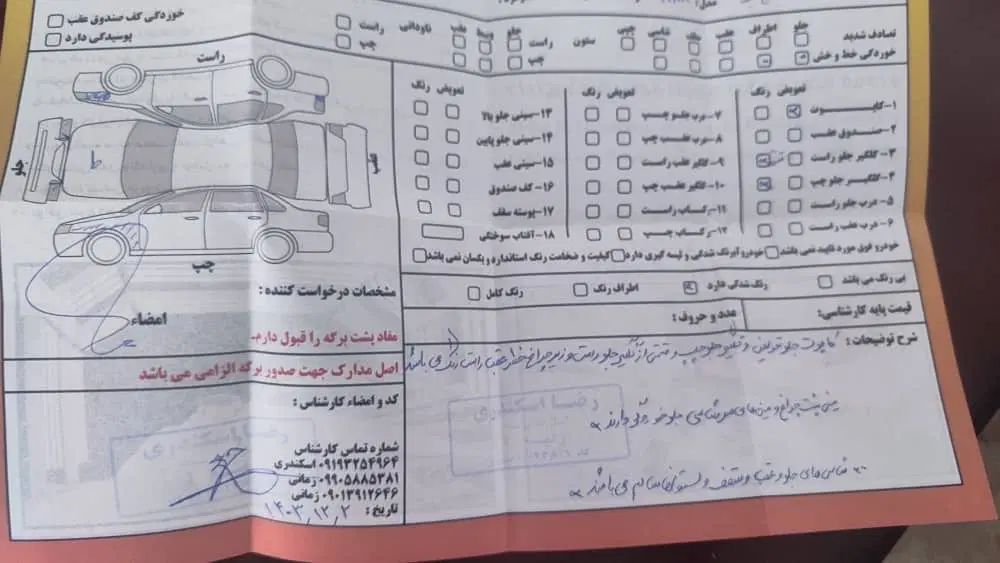 مدل:
تصادف شدید جلو اطراف عقب سقف شاسی جیبی ستون راست جلو وسط عقب ناودانی راست خوردگی کف صندوق عقب
خوردگی خط و خش چپ چپ پوسیدگی دارد
تعویض رنگ تعویض رنگ تعویض رنگ
۱- کاپوت ۷- درب جلو چپ ۱۳- سینی جلو بالا
۲- صندوق عقب ۸- درب عقب چپ ۱۴- سینی جلو پایین
۳- گلگیر جلو راست ۹- گلگیر عقب راست ۱۵- سینی عقب
۴- گلگیر جلو چپ ۱۰- گلگیر عقب چپ ۱۶- کف صندوق
۵- درب جلو راست ۱۱- رکاب راست ۱۷- پوسته سقف
۶- درب عقب راست ۱۲- رکاب چپ ۱۸- آفتاب سوختگی
خودرو فوق مورد تایید نمی باشد خودرو آبرنگ شدگی و لیسه گیری دارد کیفیت و ضخامت رنگ استاندارد و یکسان نمی باشد
بی رنگ می باشد رنگ شدگی دارد اطراف رنگ رنگ کامل
قیمت پایه کارشناسی: عدد و حروف:
شرح توضیحات: کاپوت جلو تعویض و گلگیر جلو چپ و قسمتی از گلگیر جلو راست و زیر چراغ خطر عقب راست رنگ می باشد
سینی پشت چراغ و سینی های سر شاسی جلو خوردگی دارند
شاسی های جلو و عقب و سقف و ستونها سالم می باشند
راست
جلو
ط
عقب
چپ
مشخصات درخواست کننده:
امضاء
مفاد پشت برگه را قبول دارم.
اصل مدارک جهت صدور برگه الزامی می باشد
کد و امضاء کارشناس:
رضا اسکندری
رضا اسکندری
شماره تماس کارشناس
۰۹۱۹۳۲۵۴۹۶۴ اسکندری
۰۹۹۰۵۸۸۵۳۸۱ زمانی
۰۹۰۱۳۹۱۲۶۴۶ زمانی
تاریخ: ۱۴۰۳,۱۲,۲